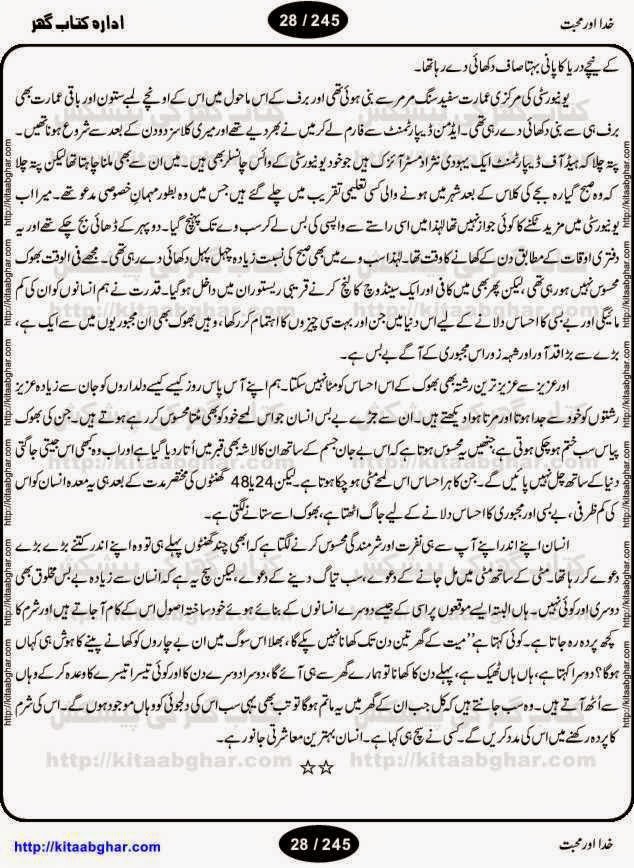 خدا اور محبت
28 / 245
ادارہ کتاب گھر
کے نیچے دریا کا پانی بہتا صاف دکھائی دے رہا تھا۔
یونیورسٹی کی مرکزی عمارت سفید سنگ مرمر سے بنی ہوئی تھی اور برف کے اس ماحول میں اس کے اونچے لمبے ستون اور باقی عمارت بھی
برف ہی سے بنی دکھائی دے رہی تھی۔ ایڈمن ڈیپارٹمنٹ سے فارم لے کر میں نے بھر دیے تھے اور میری کلاسز دو دن کے بعد سے شروع ہونا تھیں۔
پتہ چلا کہ ہیڈ آف ڈیپارٹمنٹ ایک یہودی نژاد مسٹر آئزک ہیں جو خود یونیورسٹی کے وائس چانسلر بھی ہیں۔ میں ان سے بھی ملنا چاہتا تھا لیکن پتہ چلا
کہ وہ صبح گیارہ بجے کی کلاس کے بعد شہر میں ہونے والی کسی تعلیمی تقریب میں چلے گئے ہیں جس میں وہ بطور مہمانِ خصوصی مدعو تھے۔ میرا اب
یونیورسٹی میں مزید ٹکنے کا کوئی جواز نہیں تھا لہٰذا میں اسی راستے سے واپسی کی بس لے کر سب وے تک پہنچ گیا۔ دوپہر کے ڈھائی بج چکے تھے اور یہ
دفتری اوقات کے مطابق دن کے کھانے کا وقت تھا۔ لہٰذا سب وے میں بھی صبح کی نسبت زیادہ چہل پہل دکھائی دے رہی تھی۔ مجھے فی الوقت بھوک
محسوس نہیں ہو رہی تھی، لیکن پھر بھی میں کافی اور ایک سینڈوچ کا لنچ کرنے قریبی ریستوران میں داخل ہو گیا۔ قدرت نے ہم انسانوں کو ان کی کم
مائیگی اور بے بسی کا احساس دلانے کے لیے اس دنیا میں جن اور بہت سی چیزوں کا اہتمام کر رکھا، وہیں بھوک بھی ان مجبوریوں میں سے ایک ہے،
بڑے سے بڑا قد آور اور شہہ زور اس مجبوری کے آگے بے بس ہے۔
اور عزیز سے عزیز ترین رشتہ بھی بھوک کے اس احساس کو مٹا نہیں سکتا۔ ہم اپنے آس پاس روز کیسے کیسے دلداروں کو جان سے زیادہ عزیز
رشتوں کو خود سے جدا ہوتا اور مرتا ہوا دیکھتے ہیں۔ ان سے جڑے بے بس انسان جو اس لمحے خود کو بھی فنا محسوس کر رہے ہوتے ہیں۔ جن کی بھوک
پیاس سب ختم ہو چکی ہوتی ہے، جنھیں یہ محسوس ہوتا ہے کہ اس بے جان جسم کے ساتھ ان کا لاشہ بھی قبر میں اُتار دیا گیا ہے اور اب وہ کبھی اس جیتی جاگتی
دنیا کے ساتھ چل نہیں پائیں گے۔ جن کا ہر احساس اس لمحے مٹی ہو چکا ہوتا ہے۔ لیکن 24 یا 48 گھنٹوں کی مختصر مدت کے بعد ہی یہ معدہ انسان کو اس
کی کم ظرفی، بے بسی اور مجبوری کا احساس دلانے کے لیے جاگ اٹھتا ہے، بھوک اسے ستانے لگتی ہے۔
انسان اپنے اندر اپنے آپ سے ہی نفرت اور شرمندگی محسوس کرنے لگتا ہے کہ ابھی چند گھنٹوں پہلے ہی تو وہ اپنے اندر کتنے بڑے بڑے
دعوے کر رہا تھا۔ مٹی کے ساتھ مٹی میں مل جانے کے دعوے، سب تیاگ دینے کے دعوے، لیکن سچ یہ ہے کہ انسان سے زیادہ بے بس مخلوق بھی
دوسری اور کوئی نہیں۔ ہاں البتہ ایسے موقعوں پر اسی کے جیسے دوسرے انسانوں کے بنائے ہوئے خود ساختہ اصول اس کے کام آ جاتے ہیں اور شرم کا
کچھ پردہ رہ جاتا ہے۔ کوئی کہتا ہے ”میت کے گھر تین دن تک کھانا نہیں پکے گا، بھلا اس سوگ میں ان بے چاروں کو کھانے پینے کا ہوش ہی کہاں
ہوگا؟ دوسرا کہتا ہے، ہاں ہاں ٹھیک ہے، پہلے دن کا کھانا تو ہمارے گھر سے ہی آئے گا، دوسرا دوسرے دن کا اور کوئی تیسرا تیسرے کا وعدہ کر کے وہاں
سے اُٹھ آتے ہیں۔ وہ سب جانتے ہیں کہ کل جب ان کے گھر میں یہ ماتم ہوگا تو تب بھی یہی سب اس کی دلجوئی کو وہاں موجود ہوں گے۔ اس کی شرم
کا پردہ رکھنے میں اس کی مدد کریں گے۔ کسی نے سچ ہی کہا ہے۔ انسان بہترین معاشرتی جانور ہے۔
☆☆
http://kitaabghar.com
28 / 245
خدا اور محبت